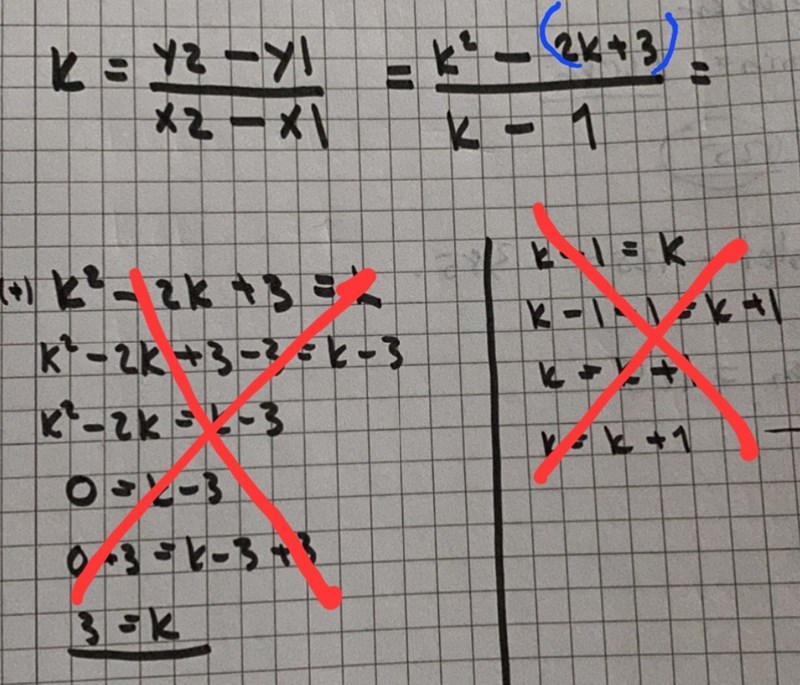 K = y2 - y1 / x2 - x1 = k² - (2k+3) / k - 1 =
(+) k² - 2k + 3 = k
k² - 2k + 3 - 3 = k - 3
k² - 2k = k - 3
0 = k - 3
0 + 3 = k - 3 + 3
3 = k
k - 1 = k
k - 1 - 1 = k + 1
k = k + 1
k = k + 1